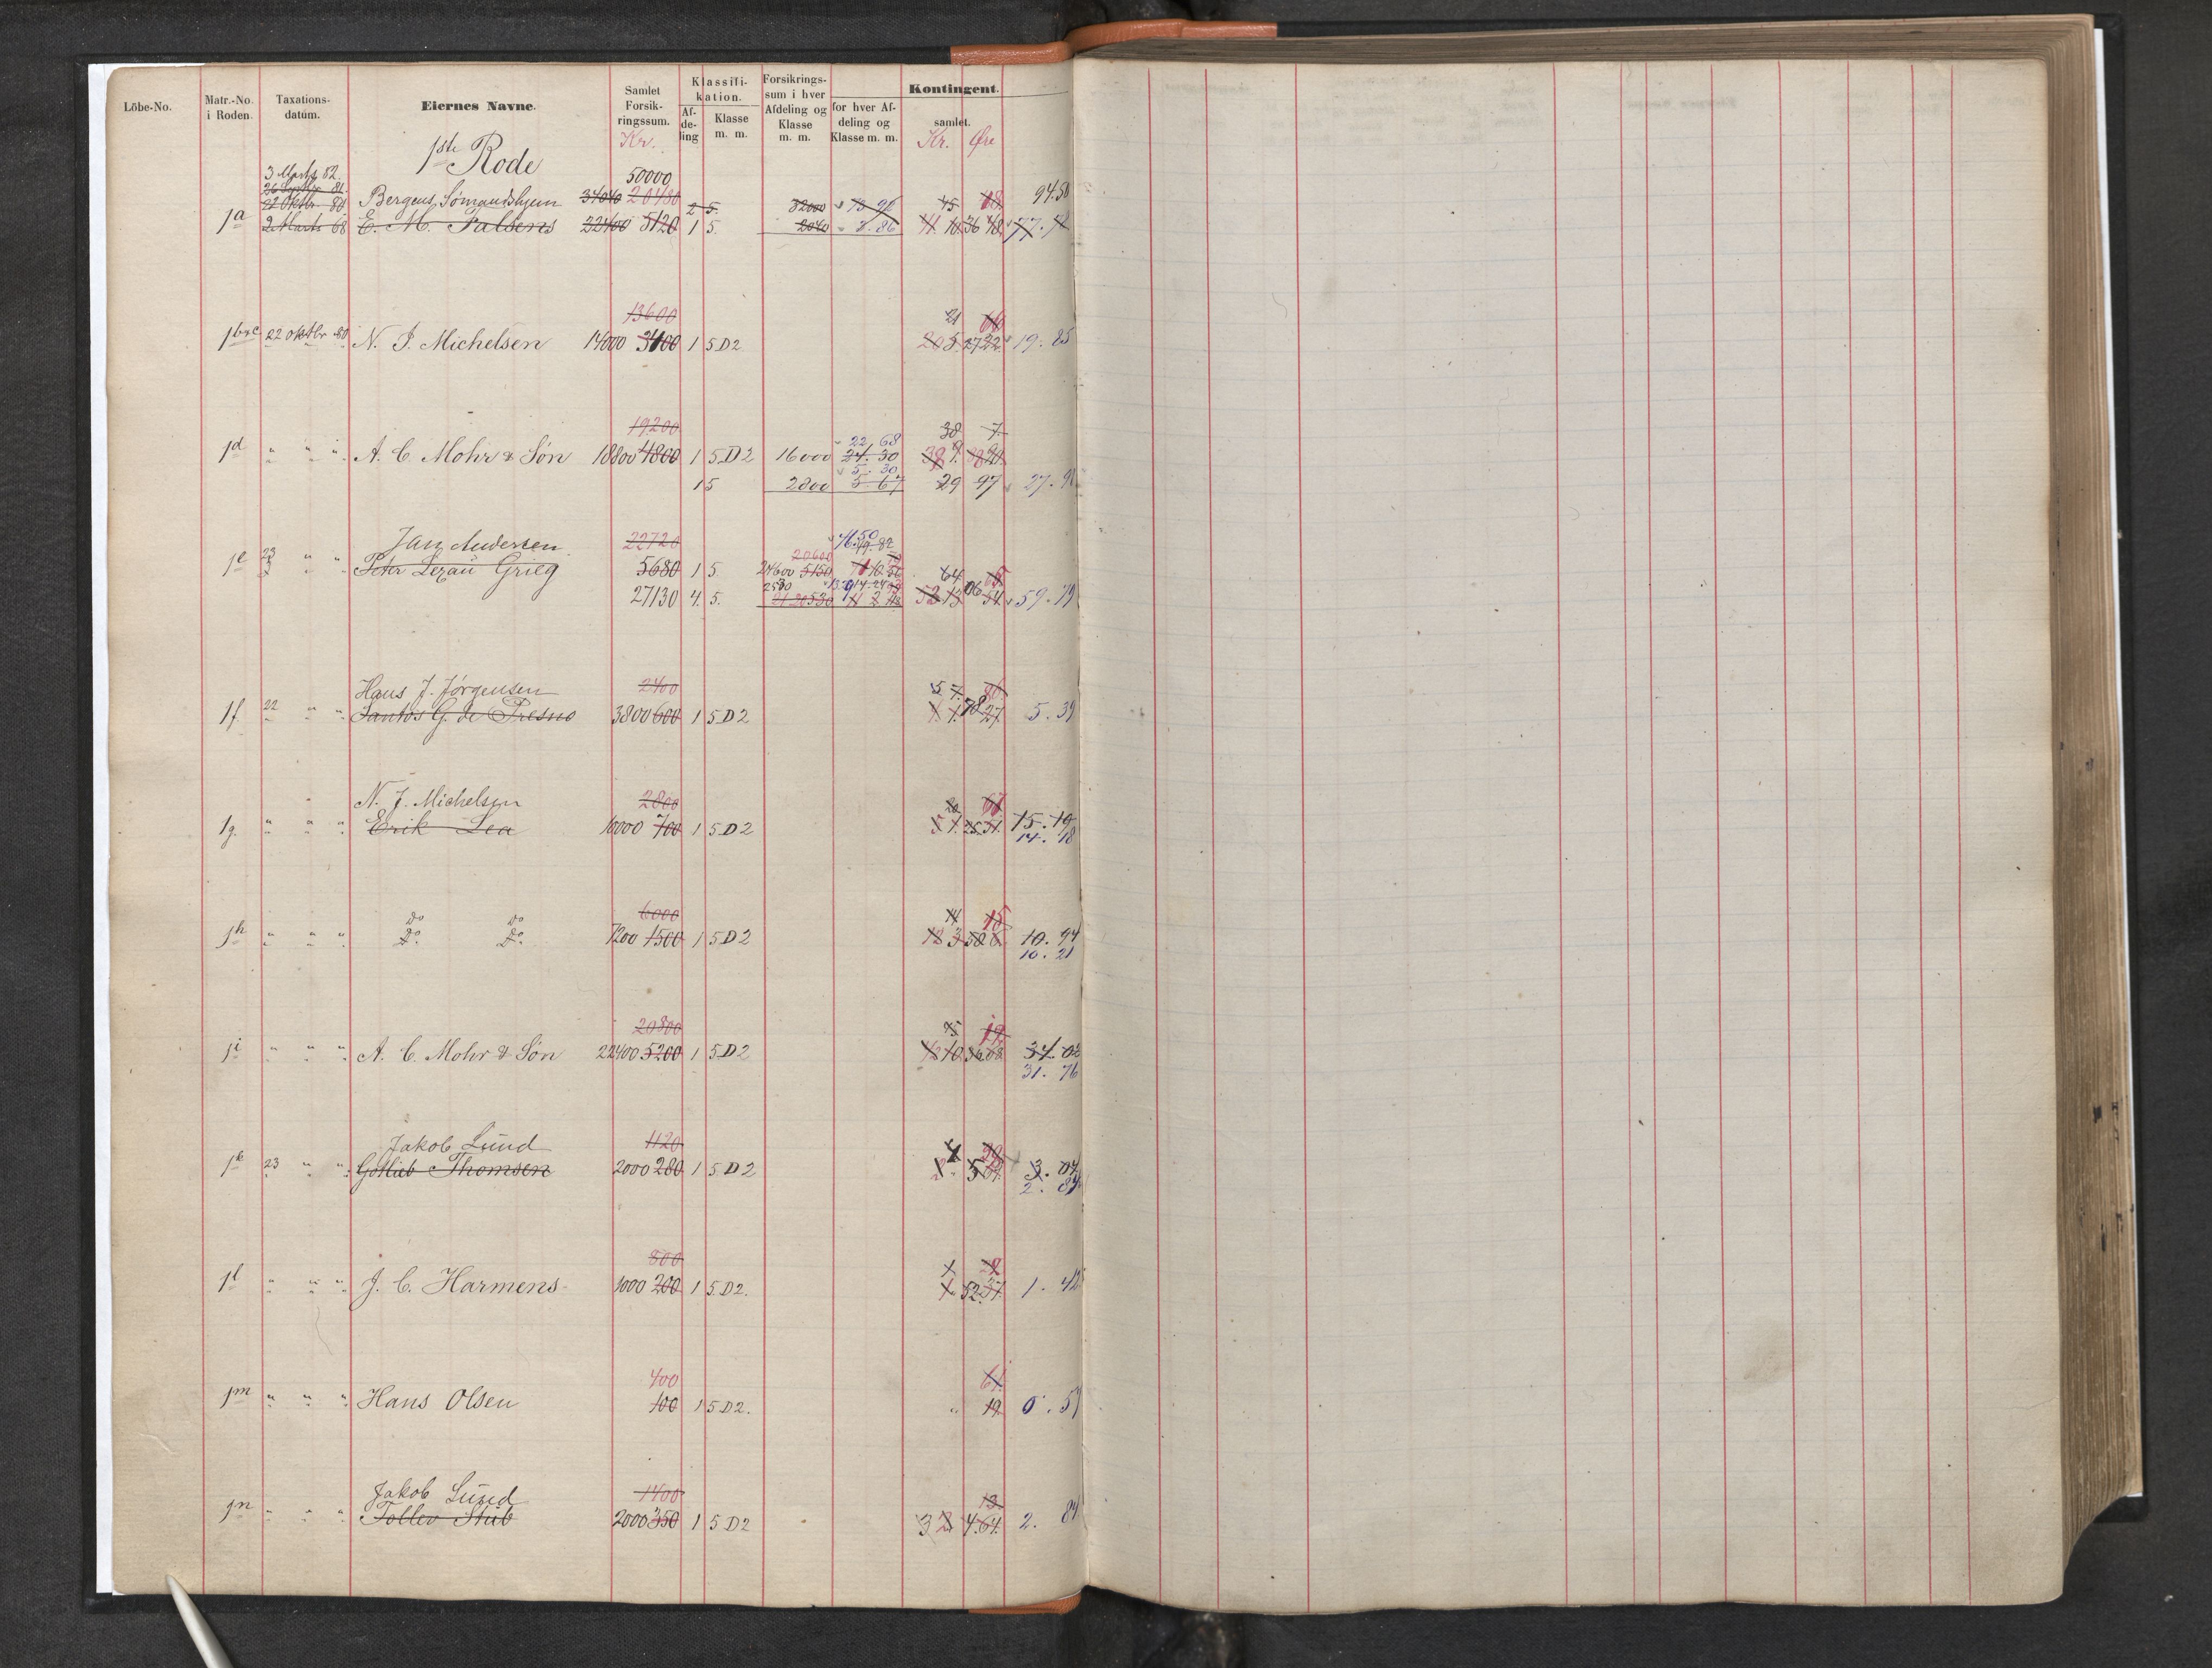 Löbe-No. Matr.-No. i Roden. Taxations-datum. Eiernes Navne. Samlet Forsik-ringssum. Klassifi-kation. Af-de-ling Klasse m. m. Forsikrings-sum i hver Afdeling og Klasse m. m. Kontingent. for hver Af-deling og Klasse m. m. samlet.
Kr. Kr. Øre
1ste Rode
3 Marts 82. 50000
26 Septbr 81.
22 Oktbr. 80. Bergens Sømandshjem 34040 20480 2 5. 32000 45 18 94.50
1a 2 Marts 68 E. M. Falsens 32400 5120 1 5. 2040 3.86 11. 10 36 48 77.78
13600
21 66
1b&c 22 Oktbr 80 N. J. Michelsen 14000 3400 1 5 D 2 20 5. 27 22 19. 85
19200
22 68 38 7
1d " " " A. C. Mohr & Søn 18800 4800 1 5. D 2 16000 24. 30
5. 30
1 5 2800 5 67 29 97 27. 98
Jan Andersen 22720 16.50
20600
1e 23 " " Peter Lexau Grieg 5680 1 5. 24600 5150 64
2530
27130 4. 5. 59. 79
Hans J. Jørgensen 2400 5 7.
1f. 22 " " Santos G. de Presno 3800 600 1 5 D 2 5. 39
N. J. Michelsen 2800 20 67
1g. " " " Erik Lea 10000 700 1 5 D 2 15. 19
14. 18
Do Do 6000 11 15
1h " " " Do. Do. 7200 1500 1 5 D 2 10. 94
10. 21
20800 35 19
1i " " " A. C. Mohr & Søn 22400 5200 1 5 D 2 34. 02
31. 76
Jakob Lund 1120
1k 23 " " Gottlieb Thomsen 2000 280 1 5 D 2 3. 04
2. 84
800 28
1l " " " J. C. Harmens 1000 200 1 5. D 2. 1. 42
400 64
1m " " " Hans Olsen 100 1 5 D 2. " 19 0. 57
Jakob Lund 1400 13
1n " " " Tollev Stub 2000 350 1 5 D 2 3 2 4.64. 2. 84